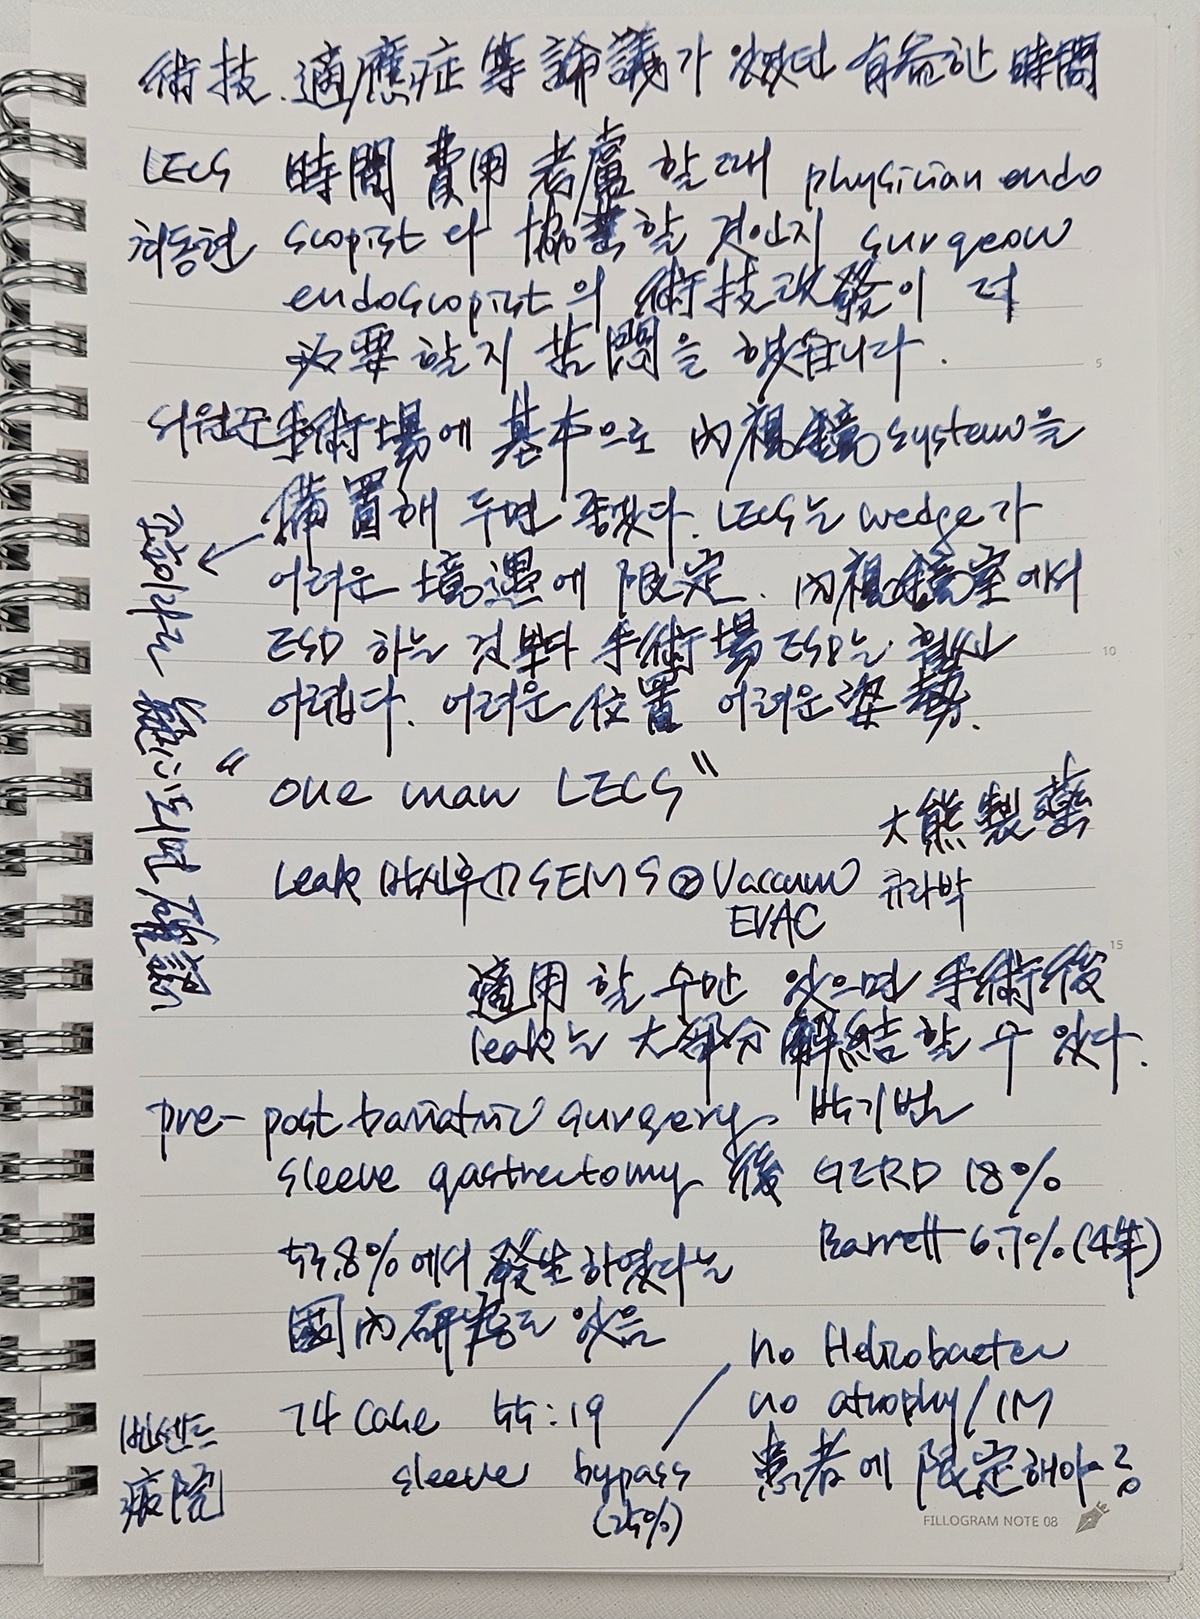 術技. 適應症 等 論議가 있었던 有益한 時間
LECS 時間 費用 考慮 할 때 physician endo
최동현 scopist 와 協業할 것인지 surgeon
endoscopist의 術技改發이 더
必要할지 苦悶을 했습니다.
서원준 手術場에 基本으로 內視鏡 system을
備置해 두면 좋겠다. LECS는 wedge가
어려운 境遇에 限定. 內視鏡室에서
ESD 하는 것보다 手術場 ESD는 훨씬
어렵다. 어려운 位置 어려운 姿勢.
確認
"one man LECS"
大熊製藥
Leak 발생후 ① SEMS ② Vaccum 큐라백
EVAC
適用할 수만 있으면 手術後
leak는 大部分 解結할 수 있다.
pre- post bariatric surgery. 박기범
sleeve gastrectomy 後 GERD 18%
Barrett 6.7% (4年)
53.8%에서 發生하였다는
國內硏究도 있음
no Helicobacter
74 case 55:19 no atrophy/IM
sleeve bypass 患者에 限定해야 함
(25%)
病院
FILLOGRAM NOTE 08
5
10
15